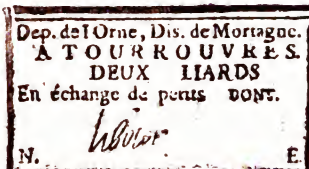 Dep. de l'Orne, Dis. de Mortagne.
A TOURROUVRES.
DEUX LIARDS
En échange de petits DONT.
N. E.